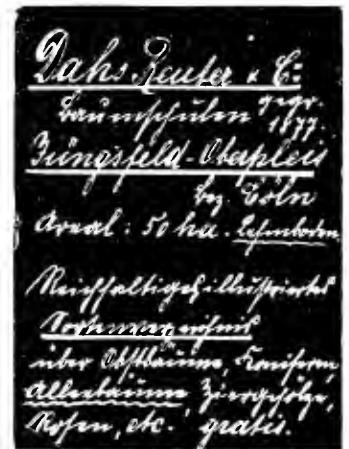 Dahs, Reuter & Co:
Baumschulen gegr.
1877.
Jüngsfeld-Oberpleis
Bez. Cöln
Areal: 50 ha. Lehmboden.
Reichhaltiges illustriertes
Sortenverzeichnis
über Obstbäume, Coniferen,
Alleebäume, Ziergehölze,
Rosen, etc. gratis.